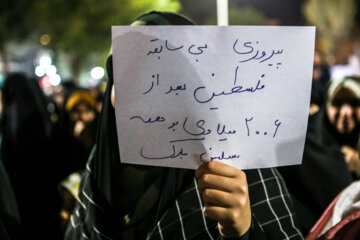 پیروزی بی سابقه
فلسطین بعد از
۲۰۰۶ میلادی بر همه
مسلمین مبارک